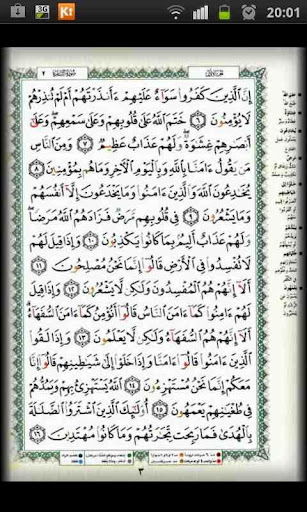 3G
Ki
20:01
إِنَّ ٱلَّذِينَ كَفَرُوا۟ سَوَآءٌ عَلَيْهِمْ ءَأَنذَرْتَهُمْ أَمْ لَمْ تُنذِرْهُمْ
لَا يُؤْمِنُونَ ٦ خَتَمَ ٱللَّهُ عَلَىٰ قُلُوبِهِمْ وَعَلَىٰ سَمْعِهِمْ وَعَلَىٰٓ
أَبْصَٰرِهِمْ غِشَٰوَةٌ وَلَهُمْ عَذَابٌ عَظِيمٌ ٧ وَمِنَ ٱلنَّاسِ
مَن يَقُولُ ءَامَنَّا بِٱللَّهِ وَبِٱلْيَوْمِ ٱلْءَاخِرِ وَمَا هُم بِمُؤْمِنِينَ ٨
يُخَٰدِعُونَ ٱللَّهَ وَٱلَّذِينَ ءَامَنُوا۟ وَمَا يَخْدَعُونَ إِلَّآ أَنفُسَهُمْ
وَمَا يَشْعُرُونَ ٩ فِى قُلُوبِهِم مَّرَضٌ فَزَادَهُمُ ٱللَّهُ مَرَضًا
وَلَهُمْ عَذَابٌ أَلِيمٌۢ بِمَا كَانُوا۟ يَكْذِبُونَ ١٠ وَإِذَا قِيلَ لَهُمْ
لَا تُفْسِدُوا۟ فِى ٱلْأَرْضِ قَالُوٓا۟ إِنَّمَا نَحْنُ مُصْلِحُونَ ١١
أَلَآ إِنَّهُمْ هُمُ ٱلْمُفْسِدُونَ وَلَٰكِن لَّا يَشْعُرُونَ ١٢ وَإِذَا قِيلَ
لَهُمْ ءَامِنُوا۟ كَمَآ ءَامَنَ ٱلنَّاسُ قَالُوٓا۟ أَنُؤْمِنُ كَمَآ ءَامَنَ ٱلسُّفَهَآءُ
أَلَآ إِنَّهُمْ هُمُ ٱلسُّفَهَآءُ وَلَٰكِن لَّا يَعْلَمُونَ ١٣ وَإِذَا لَقُوا۟
ٱلَّذِينَ ءَامَنُوا۟ قَالُوٓا۟ ءَامَنَّا وَإِذَا خَلَوْا۟ إِلَىٰ شَيَٰطِينِهِمْ قَالُوٓا۟ إِنَّا
مَعَكُمْ إِنَّمَا نَحْنُ مُسْتَهْزِءُونَ ١٤ ٱللَّهُ يَسْتَهْزِئُ بِهِمْ وَيَمُدُّهُمْ
فِى طُغْيَٰنِهِمْ يَعْمَهُونَ ١٥ أُو۟لَٰٓئِكَ ٱلَّذِينَ ٱشْتَرَوُا۟ ٱلضَّلَٰلَةَ
بِٱلْهُدَىٰ فَمَا رَبِحَت تِّجَٰرَتُهُمْ وَمَا كَانُوا۟ مُهْتَدِينَ ١٦
٣